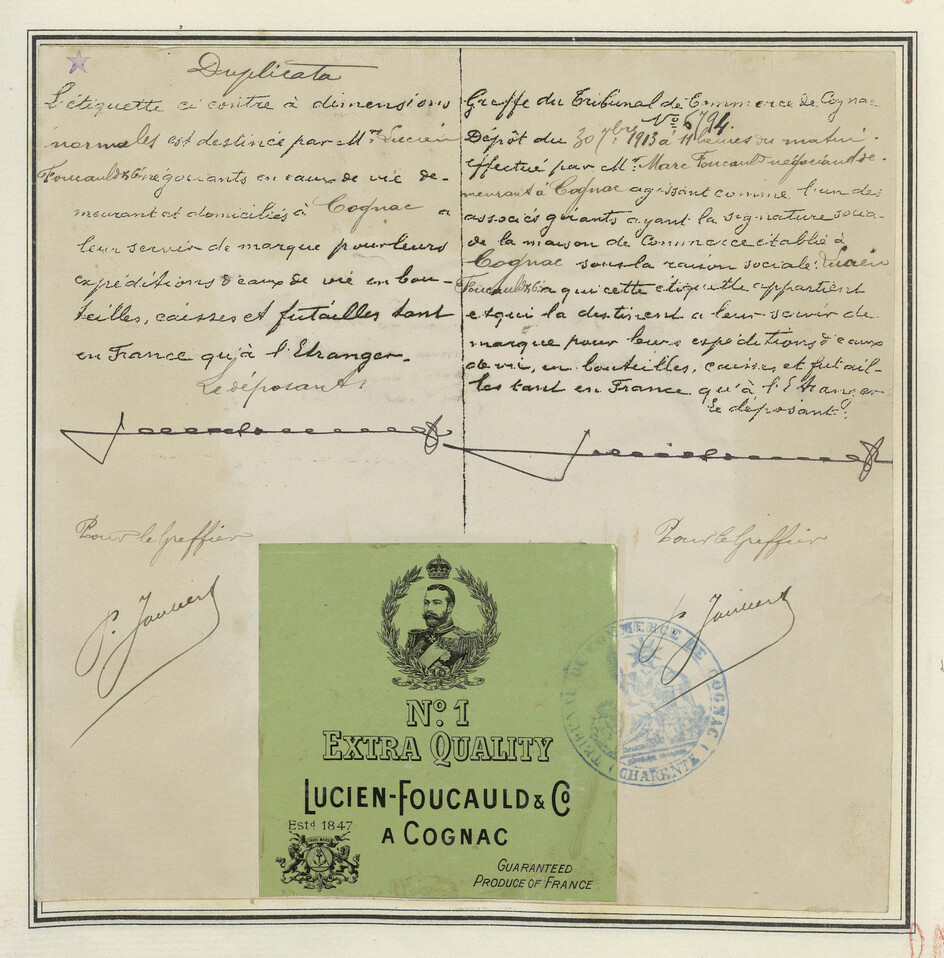 Duplicata
L'étiquette ci contre à dimensions
normales est destinée par Mrs Lucien
Foucauld & Co négociants en eaux de vie de-
meurant et domiciliés à Cognac a
leur servir de marque pour leurs
expéditions d'eaux de vie en bou-
teilles, caisses et futailles tant
en France qu'à l'Etranger.
Le déposant
Pour le Greffier
Greffe du Tribunal de Commerce de Cognac
No 6794.
Dépôt du 30 7bre 1913 à 11 heures du matin
effectué par Mr. Marc Foucauld négociant de-
meurant à Cognac agissant comme l'un des
associés gérants ayant la signature socia-
de la maison de Commerce établie à
Cognac sous la raison sociale: Lucien
Foucauld & Co a qui cette étiquette appartient
et qui la destinent a leur servir de
marque pour leurs expéditions d'eaux
de vie, en bouteilles, caisses et futail-
les tant en France qu'à l'Etranger
Le déposant.
Pour le Greffier
No. 1
EXTRA QUALITY
LUCIEN-FOUCAULD & Co
Estd 1847
A COGNAC
TRADE MARK
GUARANTEED
PRODUCE OF FRANCE
TRIBUNAL DE COMMERCE DE COGNAC
(CHARENTE)